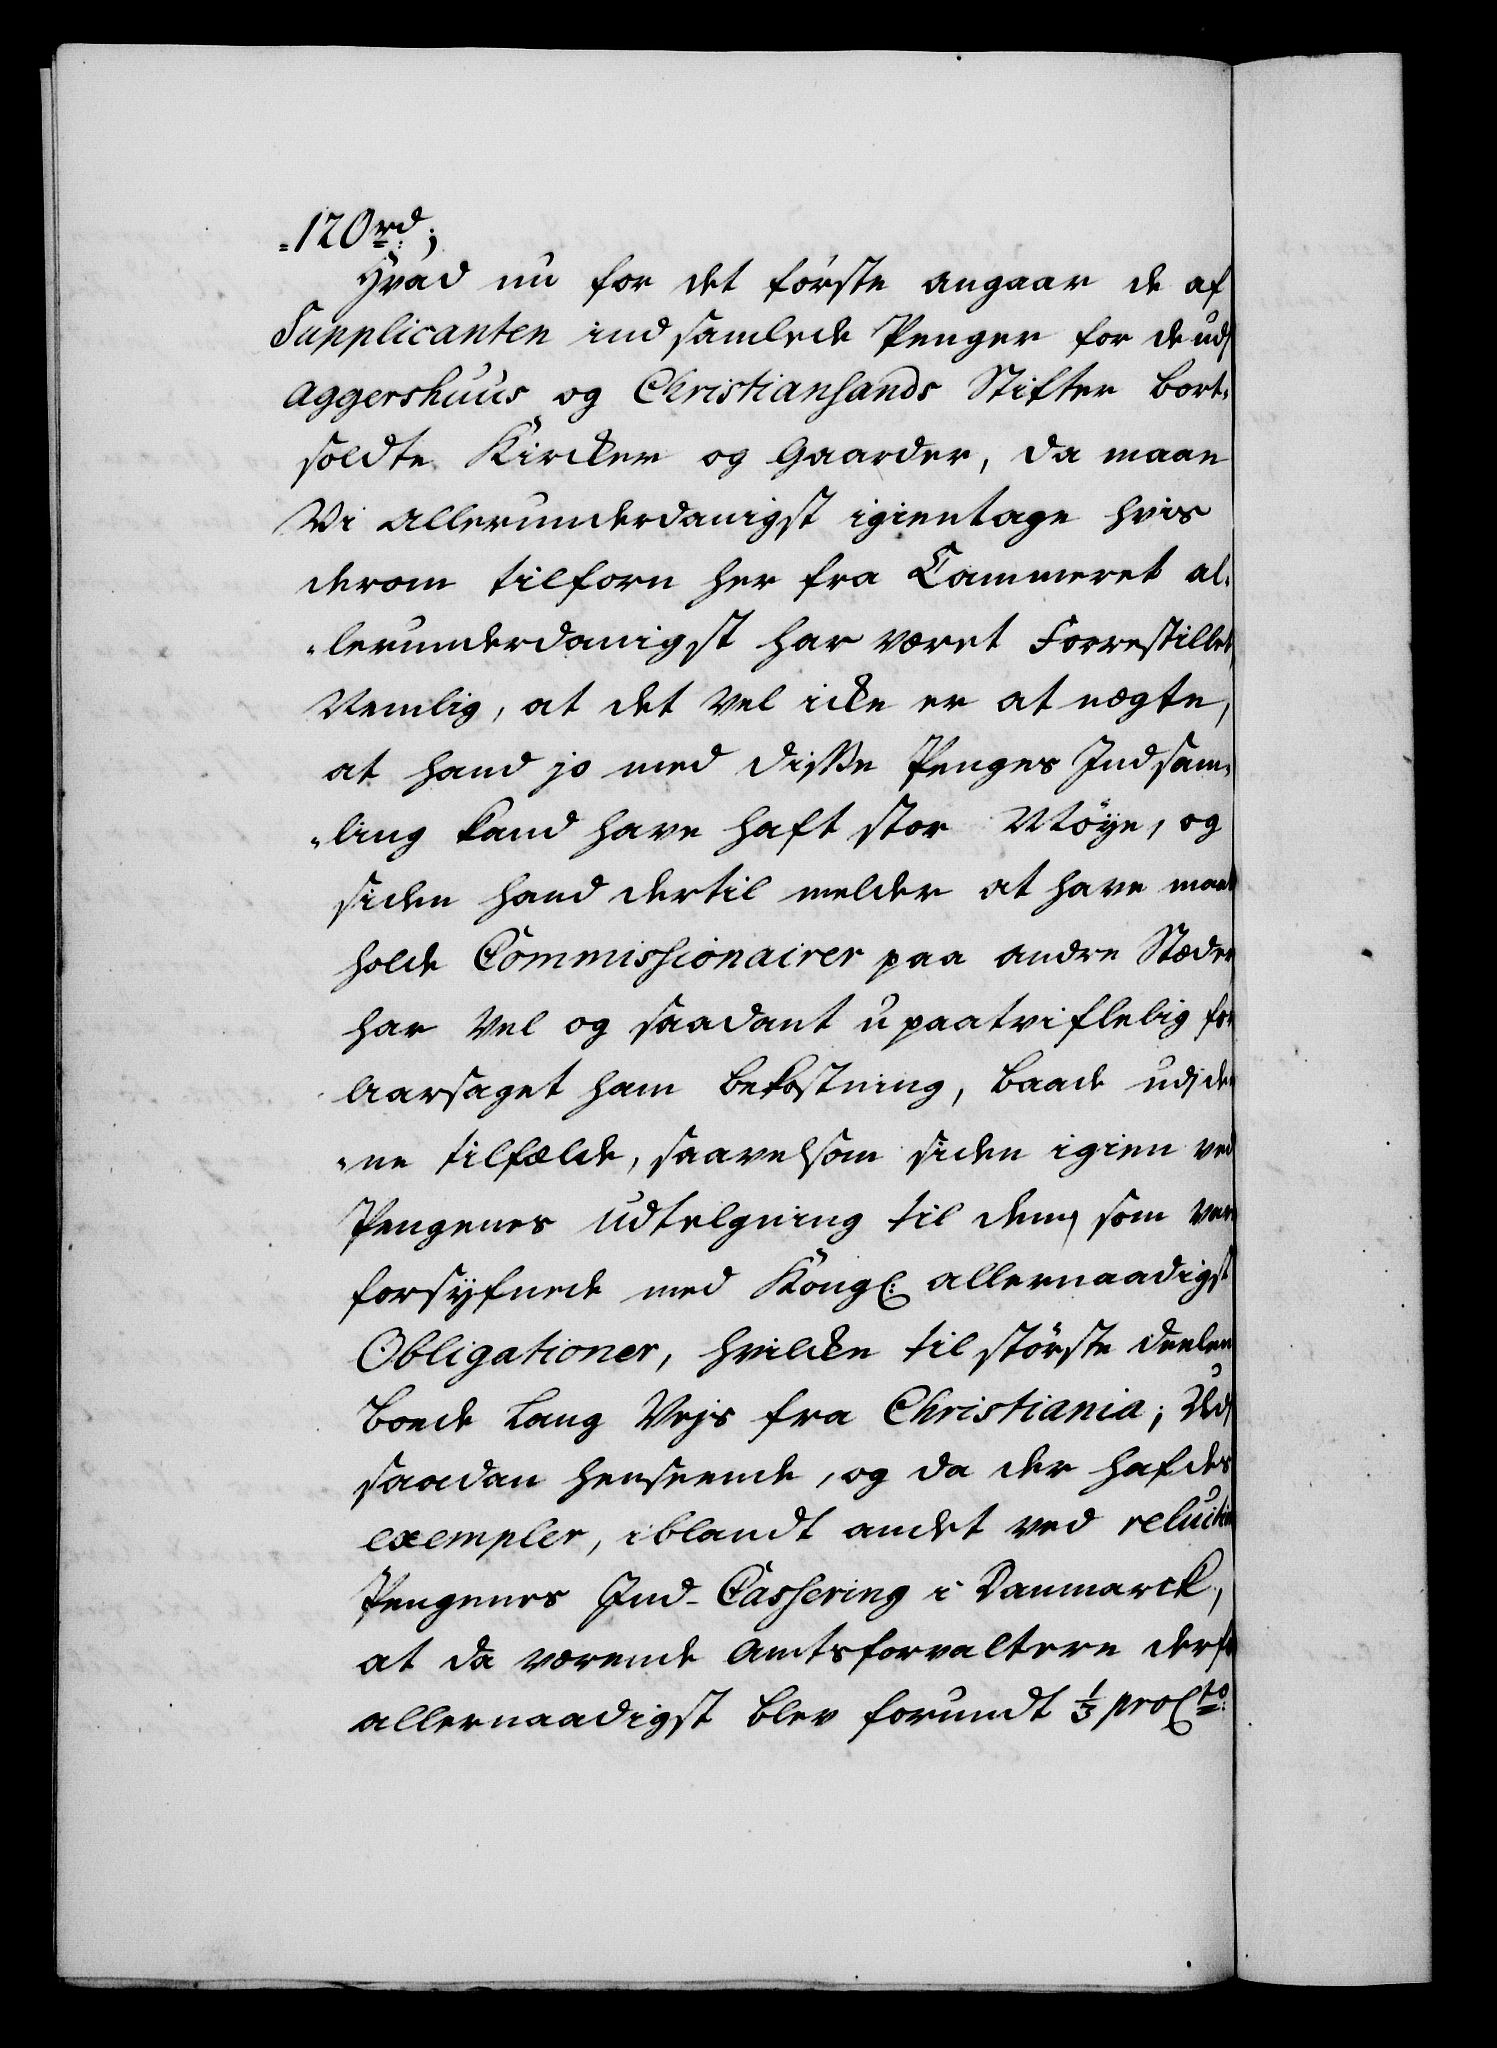 120 rd;
Hvad nu for det förste angaar de af
Supplicanten indsamlede Penger for de udj
Aggershuus og Christiansands Stifter bort-
soldte Kircker og Gaarder, da maae
Vi allerunderdanigst igientage hvis
derom tilforn her fra Cammeret al-
-lerunderdanigst har været Forrestillet,
Nemlig, at det vel icke er at nægte,
at hand jo med disse Penges Indsam-
-ling kand have haft stor Möye, og
siden hand dertil melder at have maat
holde Commissionairer paa andre Stæder
har vel og saadant upaatviflelig for
Aarsaget ham bekostning, baade udj den
-ne tilfælde, saavelsom siden igien ved
Pengenes udtelgning til dem, som var
forsyfnede med Kongl: allernaadigst
Obligationer, hvilcke til störste deelen
boede lang Vejs fra Christiania; Udj
saadan henseende, og da der hafdes
exempler, iblandt andet ved reluition
Pengenes Ind-Cassering i Danmarck,
at da værende Amtsforvaltere derfor
allernaadigst blev forundt 1/3 proCto: